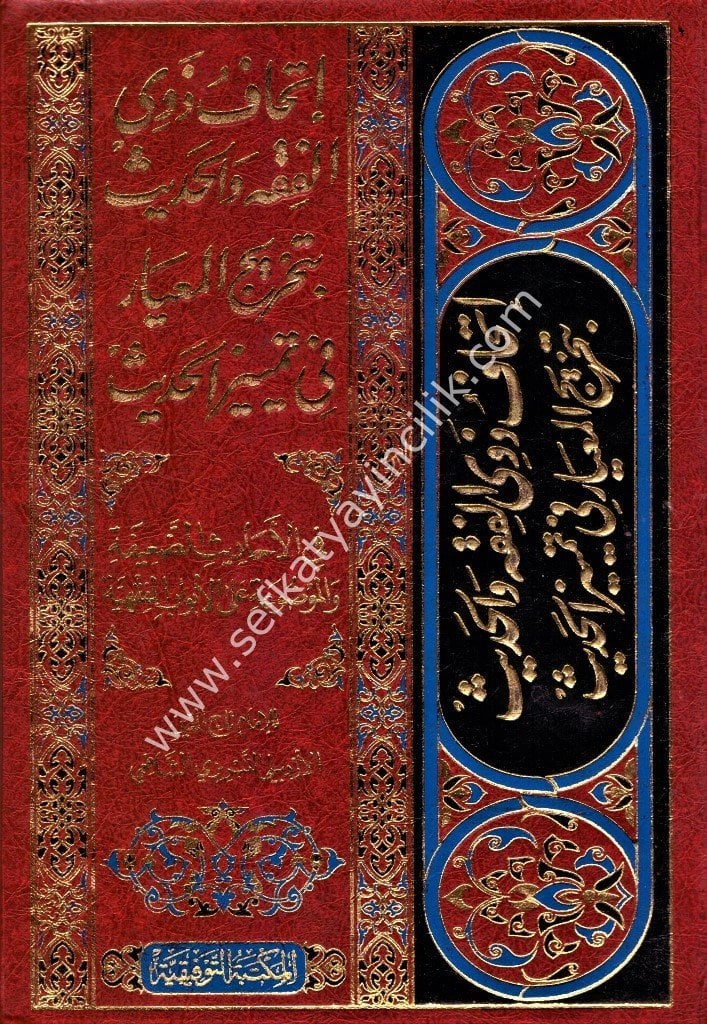 إتحاف ذوي
الفقه والحديث
بتخريج المعيار
في تمييز الحديث
في الأحاديث الضعيفة
والموضوعة على الأبواب الفقهية
للإمام تاج الدين
الأردبيلي التبريزي الشافعي
المكتبة التوفيقية
إتحاف ذوي الفقه والحديث
بتخريج المعيار في تمييز الحديث
www.sefkatyayincilik.com